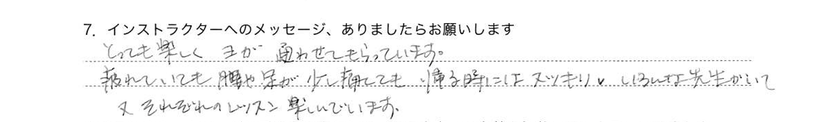 7. インストラクターへのメッセージ、ありましたらお願いします
とっても楽しく ヨガ 通わせてもらっています。
疲れていても 腰や足が 少し痛くても 帰る時には スッキリ♥ いろんな先生がいて
又 それぞれのレッスン 楽しんでいます。